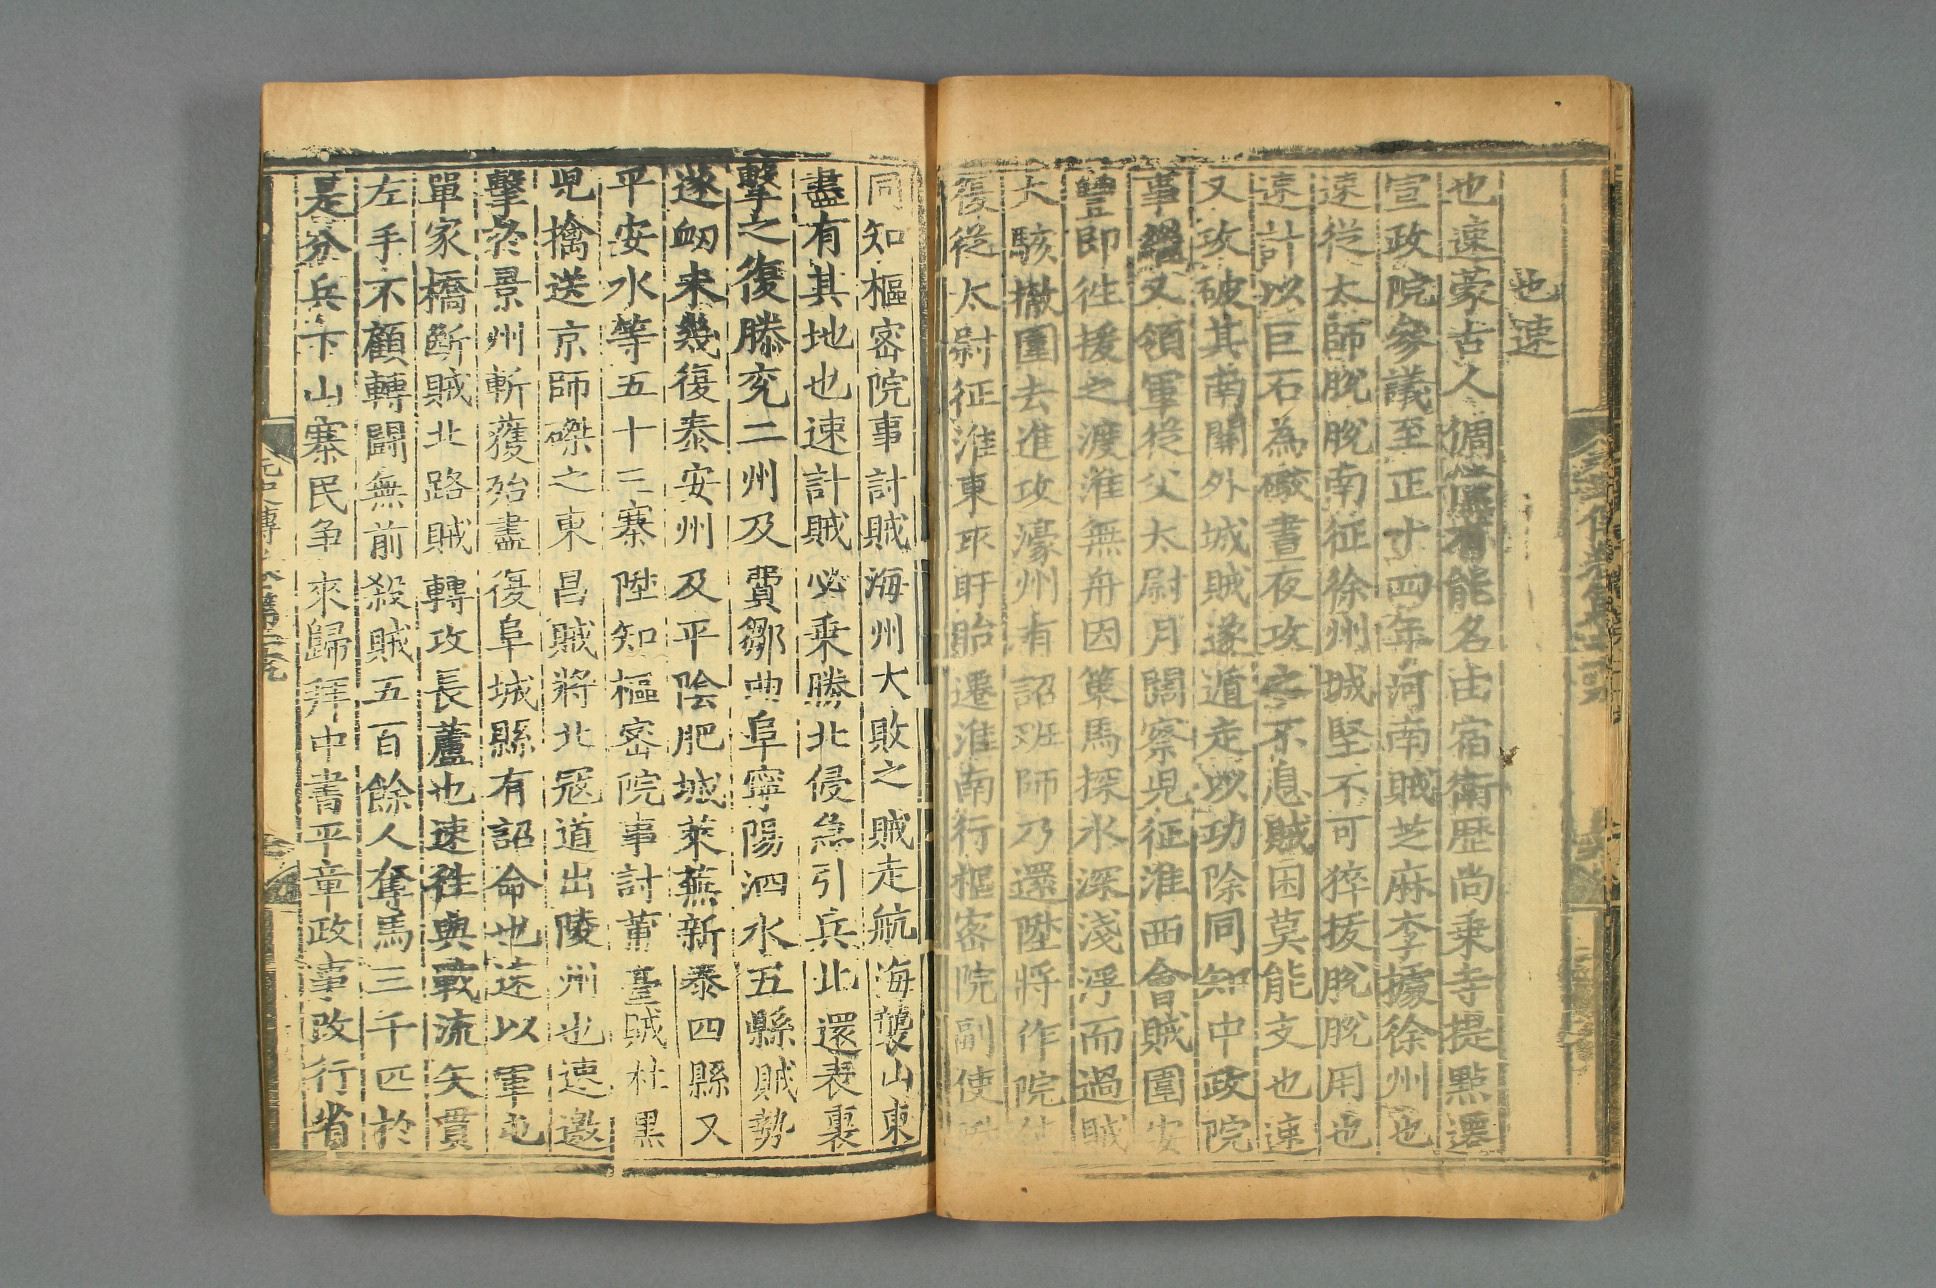 也速
也速蒙古人倜儻有能名由宿衛歷尚乗寺提點遷
宣政院參議至正十四年河南賊芝麻李據徐州也
速從太師脫脫南征徐州城堅不可猝拔脫脫用也
速計以巨石為礮晝夜攻之不息賊困莫能支也速
又攻破其南關外城賊遂遁走以功除同知中政院
事繼又領軍從父太尉月闊察兒征淮西會賊圍安
豐即往援之渡淮無舟因策馬探水深淺浮而過賊
大駭撤圍去進攻濠州有詔班師乃還陞將作院使
復從太尉征淮東取盱眙遷淮南行樞密院副使
同知樞密院事討賊海州大敗之賊走航海襲山東
盡有其地也速計賊必乗勝北侵急引兵北還表裏
擊之復滕兖二州及費鄒曲阜寧陽泗水五縣賊勢
遂衂未幾復泰安州及平陰肥城萊蕪新泰四縣又
平安水等五十三寨陞知樞密院事討蒲臺賊杜黑
兒擒送京師磔之東昌賊將北冦道出陵州也速邀
擊於景州斬獲殆盡復阜城縣有詔命也速以軍屯
單家橋斷賊北路賊轉攻長蘆也速往與戰流矢貫
左手不顧轉闘無前殺賊五百餘人奪馬三千匹於
是分兵下山寨民争來歸拜中書平章政事改行省